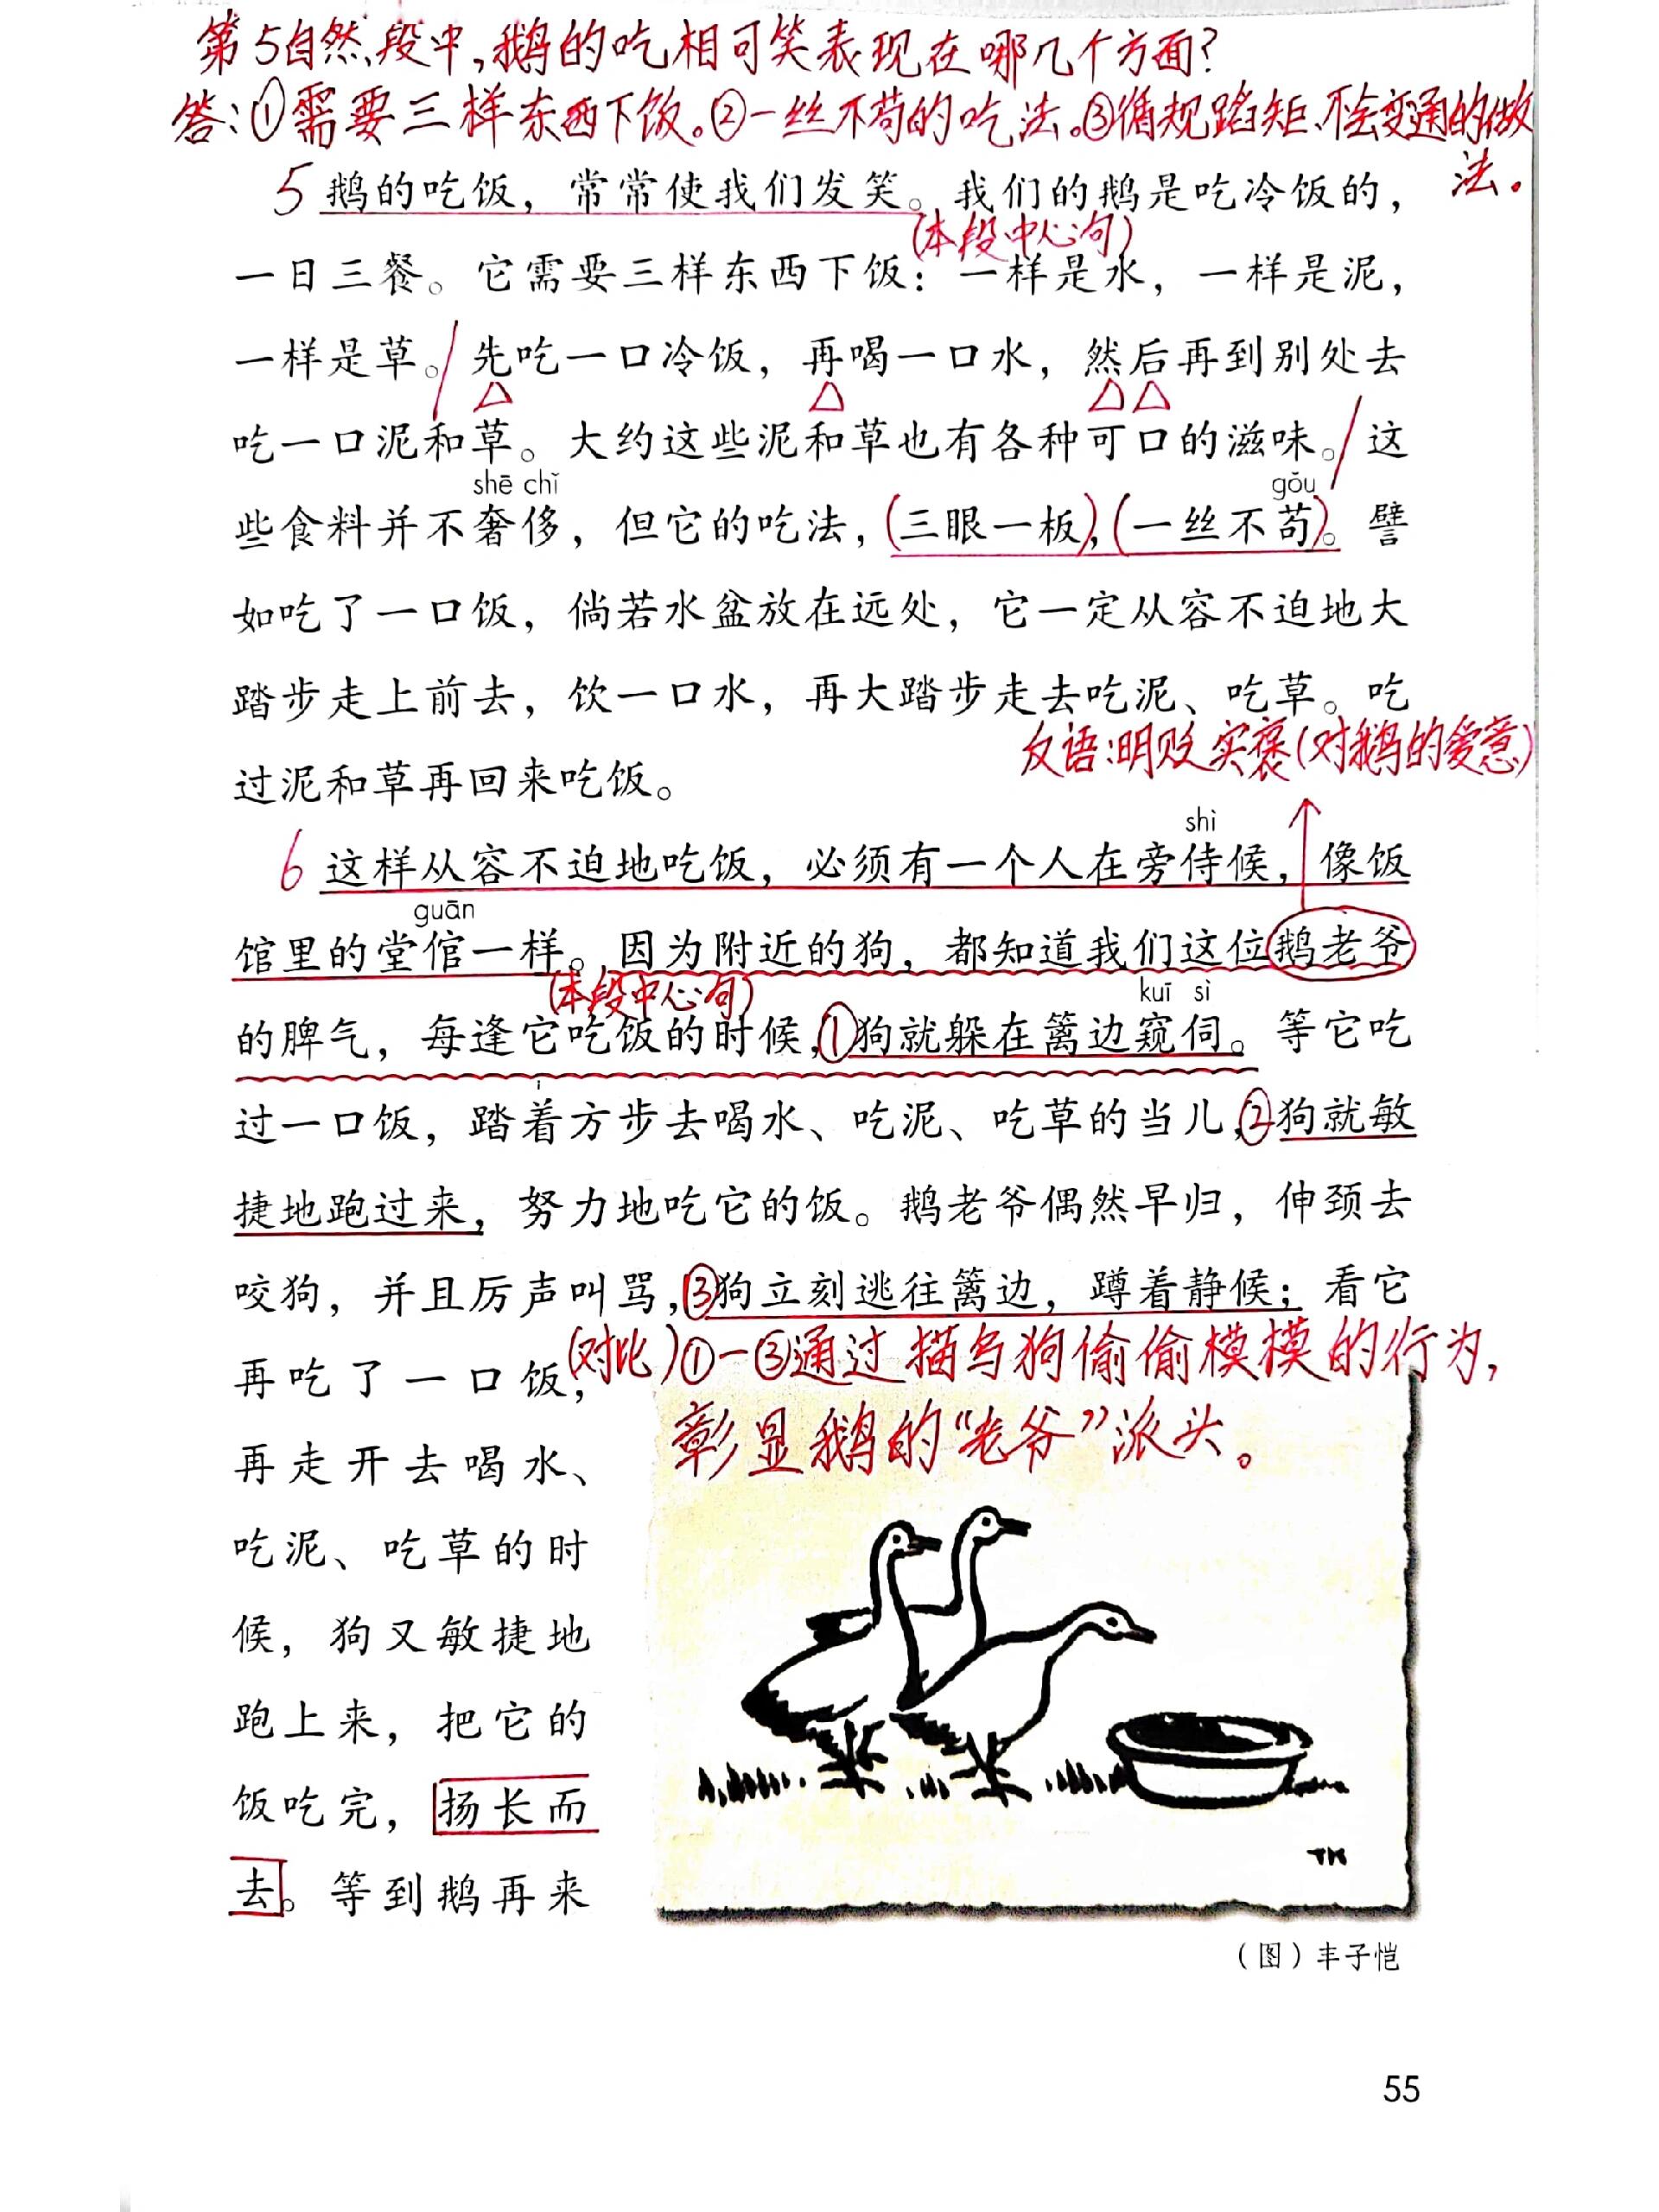 第5自然段中,鹅的吃相可笑表现在哪几个方面?
答:①需要三样东西下饭。②一丝不苟的吃法。③循规蹈矩、不会变通的做
法。
5 鹅的吃饭，常常使我们发笑。我们的鹅是吃冷饭的，
(本段中心句)
一日三餐。它需要三样东西下饭：一样是水，一样是泥，
一样是草。先吃一口冷饭，再喝一口水，然后再到别处去
吃一口泥和草。大约这些泥和草也有各种可口的滋味。这
shē chǐ gǒu
些食料并不奢侈，但它的吃法，(三眼一板),(一丝不苟)。譬
如吃了一口饭，倘若水盆放在远处，它一定从容不迫地大
踏步走上前去，饮一口水，再大踏步走去吃泥、吃草。吃
反语:明贬实褒(对鹅的爱意)
过泥和草再回来吃饭。
shì
6 这样从容不迫地吃饭，必须有一个人在旁侍候，像饭
guān
馆里的堂倌一样。因为附近的狗，都知道我们这位鹅老爷
(本段中心句)
kuī sì
的脾气，每逢它吃饭的时候，①狗就躲在篱边窥伺。等它吃
过一口饭，踏着方步去喝水、吃泥、吃草的当儿，②狗就敏
捷地跑过来，努力地吃它的饭。鹅老爷偶然早归，伸颈去
咬狗，并且厉声叫骂，③狗立刻逃往篱边，蹲着静候；看它
(对比)①-③通过描写狗偷偷摸摸的行为,
再吃了一口饭，
彰显鹅的“老爷”派头。
再走开去喝水、
吃泥、吃草的时
候，狗又敏捷地
跑上来，把它的
饭吃完，扬长而
去。等到鹅再来
TK
（图）丰子恺
55